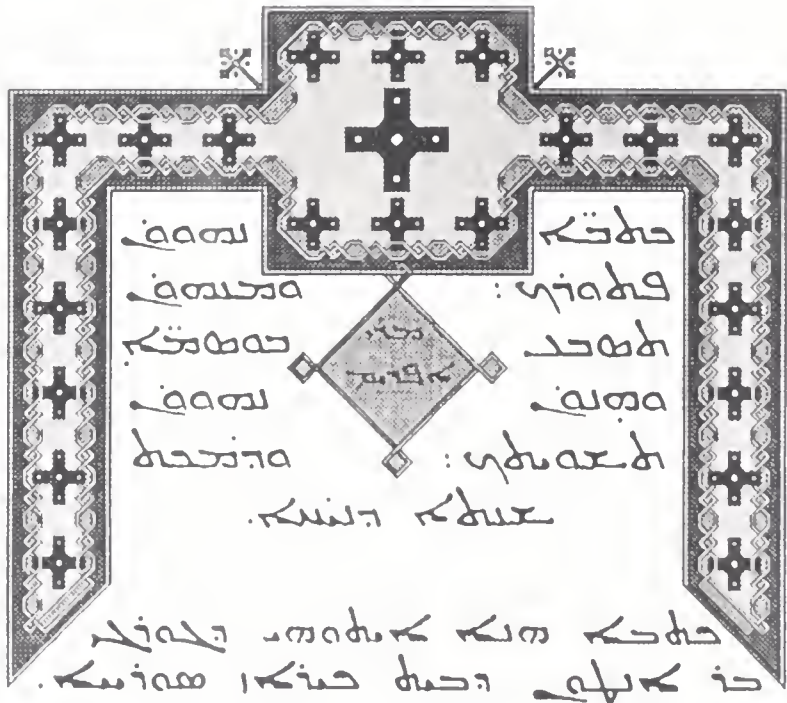 ܟܬܒ̈ܐ ܢܗܘܘܢ
ܦܬܘܪܟ : ܘܡܢܗܘܢ
ܬܣܒܥ ܒܘܣܡ̈ܐ
ܘܗܢܘܢ ܢܗܘܘܢ
ܬܫܘܝܬܟ : ܘܕܡܟܬ
ܫܢܬܐ ܕܢܝܚܐ.
ܡܪܝ
ܐܦܪܝܡ
ܟܬܒܐ ܗܢܐ ܐܝܬܘܗܝ ܕܓܘܪܓ
ܒܪ ܐܢܛܘܢ ܕܒܝܬ ܟܝܪܐܙ ܣܘܪܝܝܐ.